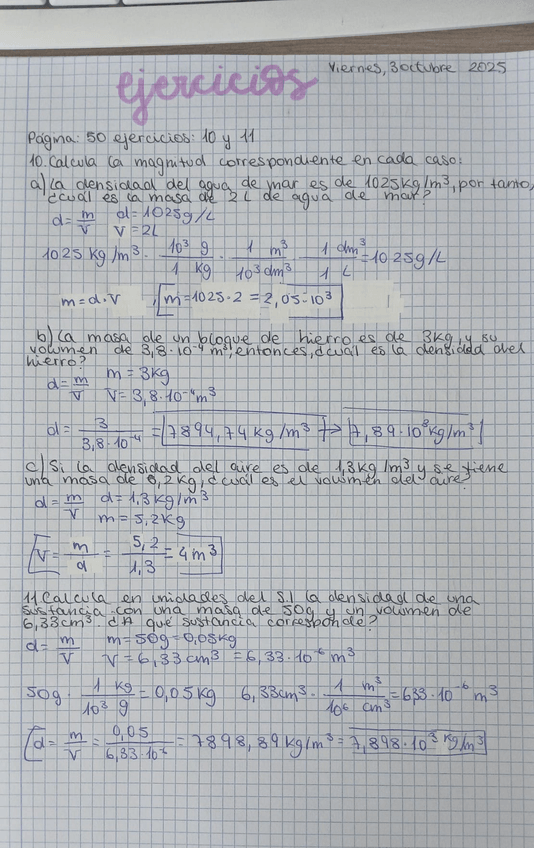 Viernes, 3 octubre 2025
ejercicios
Página: 50 ejercicios: 10 y 11
10. Calcula la magnitud correspondiente en cada caso:
a) La densidad del agua de mar es de 1025 kg/m³, por tanto,
¿cuál es la masa de 2 L de agua de mar?
d = m/V d = 1025 g/L
V = 2L
1025 kg/m³ · 10³ g / 1 kg · 1 m³ / 10³ dm³ · 1 dm³ / 1 L = 1025 g/L
m = d · V m = 1025 · 2 = 2,05 · 10³
b) La masa de un bloque de hierro es de 3kg, y su
volumen de 3,8 · 10⁻⁴ m³, entonces, ¿cuál es la densidad del
hierro?
d = m/V m = 3kg
V = 3,8 · 10⁻⁴ m³
d = 3 / 3,8 · 10⁻⁴ = 7894,74 kg/m³ → 7,89 · 10³ kg/m³
c) Si la densidad del aire es de 1,3 kg/m³ y se tiene
una masa de 5,2 kg, ¿cuál es el volumen del aire?
d = m/V d = 1,3 kg/m³
m = 5,2 kg
V = m/d = 5,2 / 1,3 = 4 m³
11. Calcula en unidades del S.I la densidad de una
sustancia con una masa de 50g y un volumen de
6,33cm³. ¿A qué sustancia corresponde?
d = m/V m = 50g = 0,05kg
V = 6,33 cm³ = 6,33 · 10⁻⁶ m³
50g · 1 kg / 10³ g = 0,05 kg 6,33cm³ · 1 m³ / 10⁶ cm³ = 6,33 · 10⁻⁶ m³
d = m/V = 0,05 / 6,33 · 10⁻⁶ = 7898,89 kg/m³ = 7,898 · 10³ kg/m³